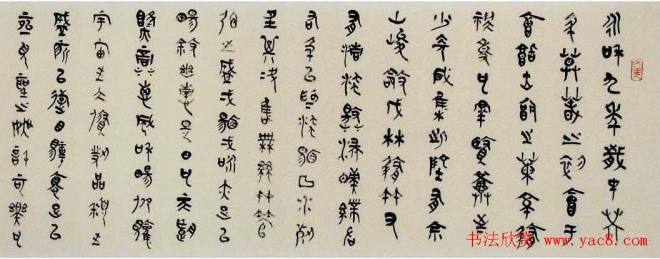 永和九年歲在癸
丑暮春之初會于
會稽山陰之蘭亭脩
禊事也群賢畢至
少長咸集此地有崇
山峻領茂林脩竹又
有清流激湍映帶左
右引以為流觴曲水列
坐其次雖無絲竹管
弦之盛一觴一詠亦足以
暢敘幽情是日也天朗
氣清惠風和暢仰觀
宇宙之大俯察品類之
盛所以遊目騁懷足以
極視聽之娛信可樂也
书法欣赏
www.yac8.com